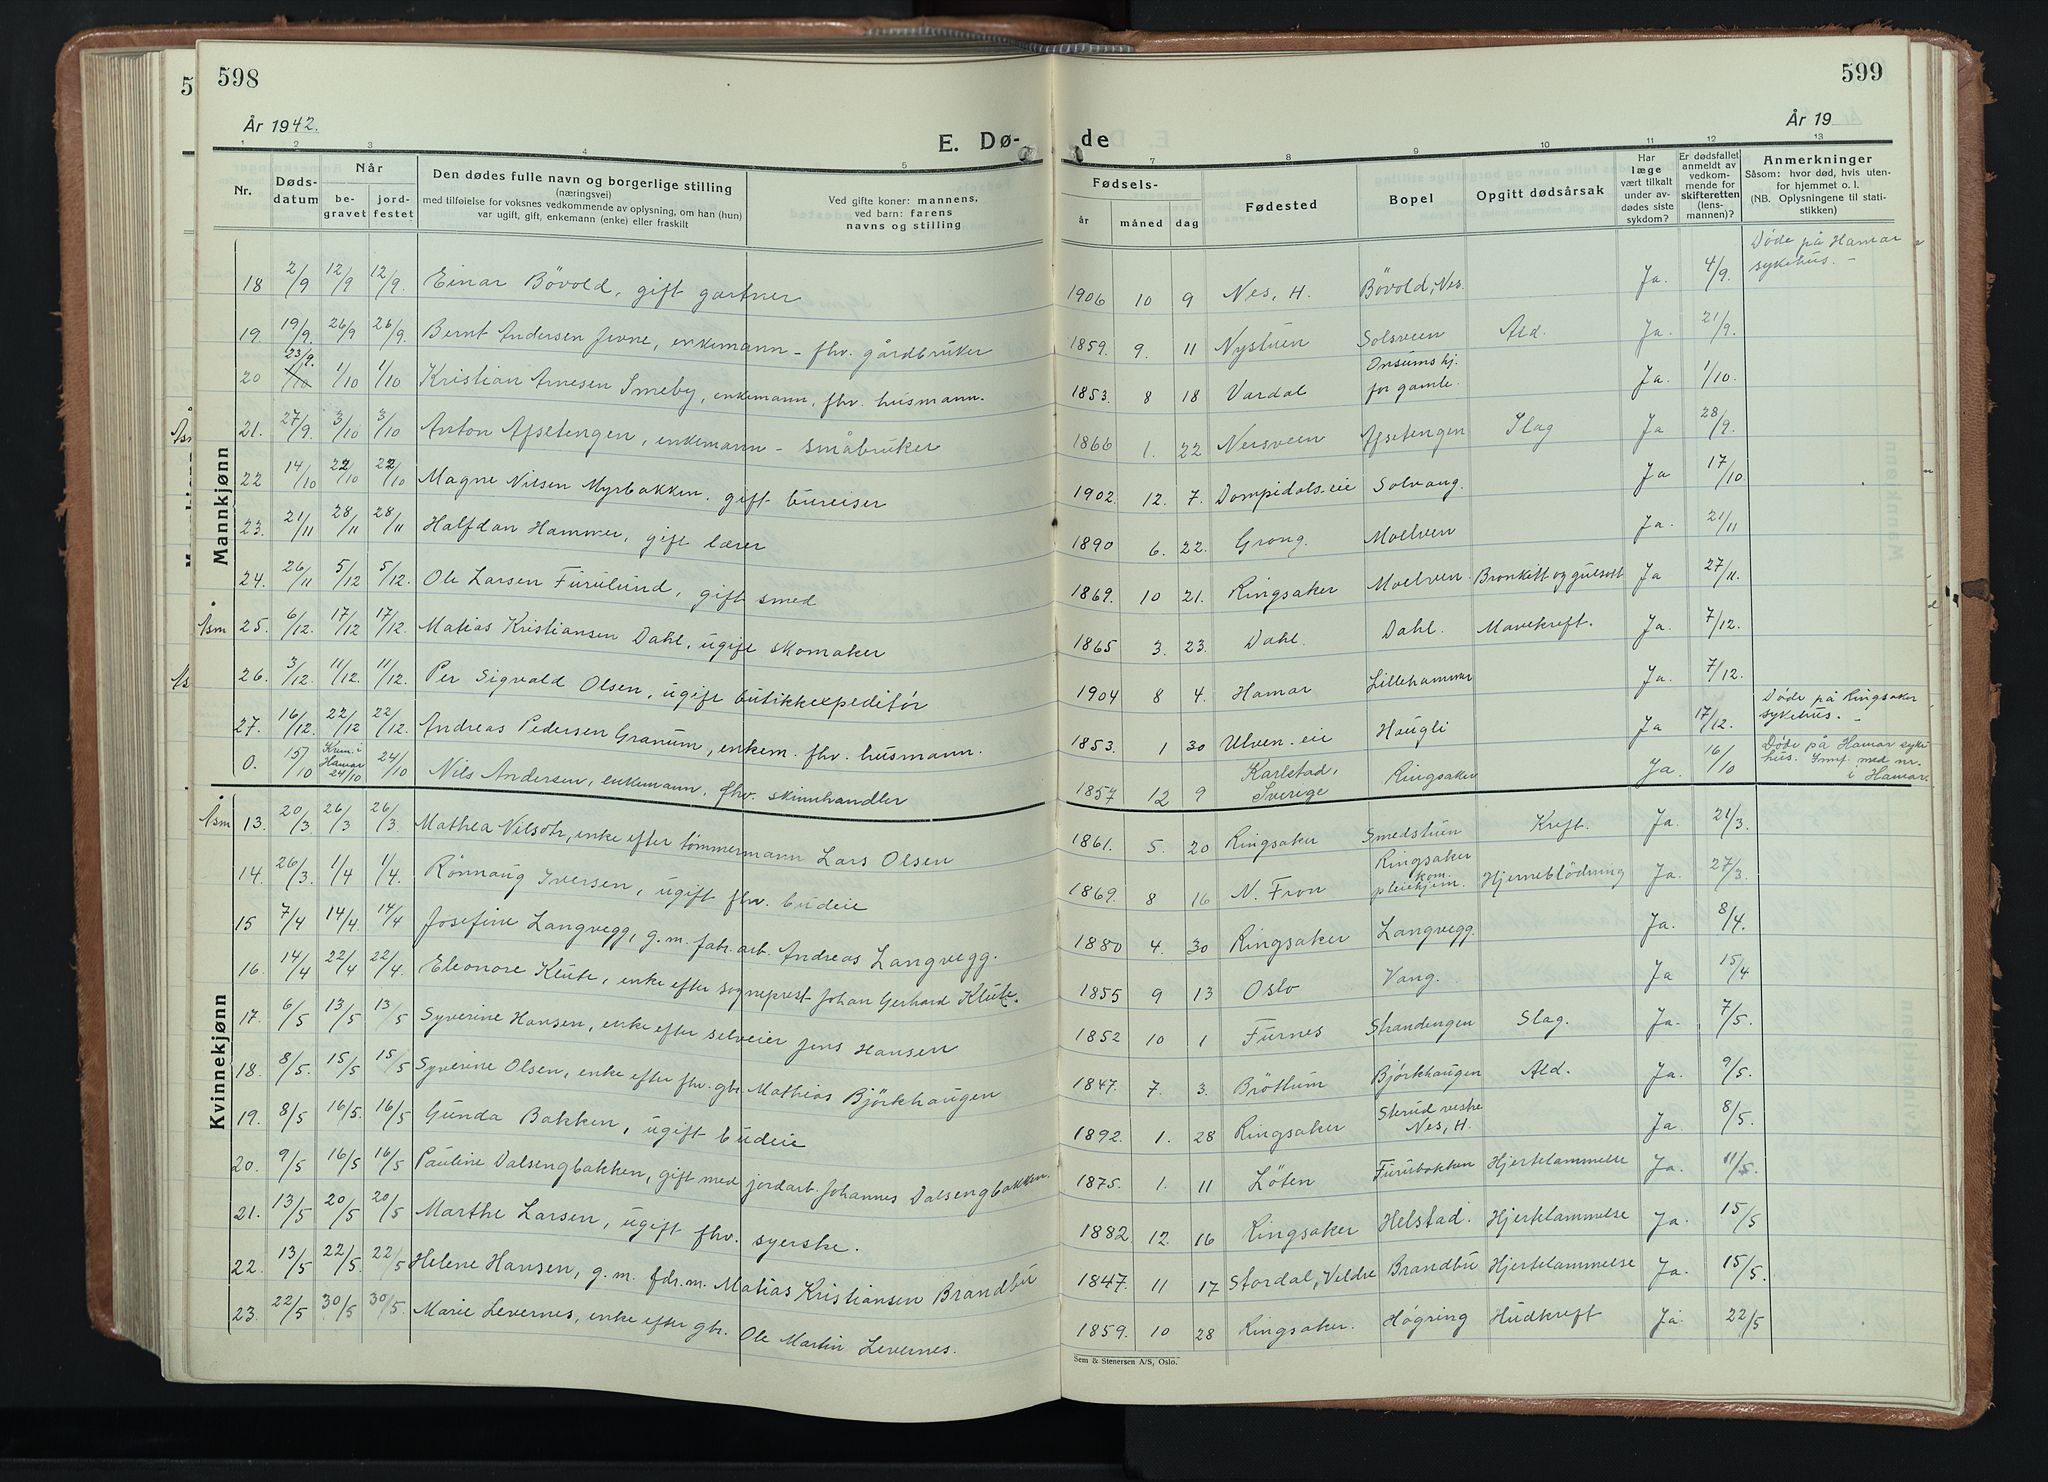 598
År 1942.
E. Dø-
1 2 3 4 5
Nr.
Døds-
datum
Når
be-
gravet
jord-
festet
Den dødes fulle navn og borgerlige stilling
(næringsvei)
med tilføielse for voksnes vedkommende av oplysning, om han (hun)
var ugift, gift, enkemann (enke) eller fraskilt
Ved gifte koner: mannens,
ved barn: farens
navns og stilling
Mannkjønn
18 2/9 12/9 12/9. Einar Bövold, gift gartner
19. 19/9. 26/9 26/9. Bernt Andersen Jevne, enkemann - fhv. gårdbruker
20 23/9. 1/10 1/10 Kristian Arnesen Smeby, enkemann, fhv. husmann.
21. 27/9. 3/10 3/10 Anton Afsetengen, enkemann - småbruker
22 14/10 22/10 22/10 Magne Nilsen Myrbakken. gift bureiser
23. 21/11 28/11 28/11 Halfdan Hammer, gift lærer
24. 26/11 5/12 5/12. Ole Larsen Furulund, gift smed
Åsm 25. 6/12. 17/12 17/12. Matias Kristiansen Dahl, ugift skomaker
26. 3/12. 11/12. 11/12. Per Sigvald Olsen, ugift butikkexpeditør
27. 16/12. 22/12 22/12. Andreas Pedersen Granum, enkem. fhv. husmann.
0. 15/10 Krem. i Hamar 24/10 24/10 Nils Andersen, enkemann, fhv. skinnhandler
Kvinnekjønn
Åsm 13. 20/3 26/3 26/3. Mathea Nilsdtr, enke efter tømmermann Lars Olsen
14. 26/3. 1/4 1/4. Rønnaug Iversen, ugift fhv. budeie
15 7/4 14/4. 14/4 Josefine Langvegg, g.m. fabr.arb. Andreas Langvegg.
16. 14/4 22/4 22/4. Eleonore Klüte, enke efter sogneprest Johan Gerhard Klüte.
17. 6/5 13/5 13/5 Syverine Hansen, enke efter selveier Jens Hansen
18. 8/5. 15/5 15/5 Syverine Olsen, enke efter fhv. gbr. Mathias Björkhaugen
19. 8/5 16/5. 16/5 Gunda Bakken, ugift budeie
20. 9/5 16/5 16/5 Pauline Dalsengbakken, gift med jordarb. Johannes Dalsengbakken.
21. 13/5 20/5 20/5 Marthe Larsen, ugift fhv. syerske.
22. 13/5 22/5. 22/5 Helene Hansen, g.m. fdr.m. Matias Kristiansen Brandbu
23. 22/5 30/5 30/5. Marie Levernes, enke efter gbr. Ole Martin Levernes.
599
År 19
de
7 8 9 10 11 12 13
Fødsels-
år måned dag
Fødested
Bopel
Opgitt dødsårsak
Har
læge
vært tilkalt
under av-
dødes siste
sykdom?
Er dødsfallet
anmeldt av
vedkom-
mende for
skifteretten
(lens-
mannen)?
Anmerkninger
Såsom: hvor død, hvis uten-
for hjemmet o. l.
(NB. Oplysningene til stati-
stikken)
1906 10 9 Nes, H. Bövold, Nes. Ja. 4/9. Døde på Hamar sykehus. -
1859. 9. 11 Nystuen Solsveen Ald. Ja. 21/9.
1853. 8 18 Vardal Onsumshj. for gamle. Ja. 1/10.
1866 1. 22 Nersveen Afsetengen Slag Ja 28/9.
1902. 12. 7. Dompidals.eie Solvang. Ja 17/10
1890 6. 22. Grong. Moelven Ja. 21/11
1869. 10 21. Ringsaker Moelven Bronkitt og gulsott Ja 27/11.
1865 3. 23. Dahl. Dahl. Mavekreft. Ja. 7/12.
1904 8 4. Hamar Lillehammer Ja. 7/12.
1853. 1 30 Ulven. eie Haugli Ja 17/12. Døde på Ringsaker sykehus. -
1857 12 9 Karlstad, Sverige Ringsaker Ja. 16/10 Døde på Hamar sykehus. Innf. med nr. i Hamar.
1861. 5. 20 Ringsaker Smedstuen Kreft. Ja. 21/3.
1869. 8 16 N. Fron Ringsaker kom. pleiehjem. Hjerneblödning Ja. 27/3
1880 4. 30 Ringsaker Langvegg. Ja. 8/4.
1855 9 13 Oslo Vang. Ja 15/4
1852 10 1 Furnes Strandengen Slag. Ja. 7/5.
1847. 7. 3. Bröttum Bjørkhaugen Ald. Ja. 9/5.
1892. 1. 28 Ringsaker Sterud vestre Nes, H. Ja. 8/5.
1875. 1. 11 Löten Furubakken Hjertelammelse Ja. 11/5.
1882. 12. 16 Ringsaker Helstad. Hjertelammelse Ja. 15/5
1847. 11 17 Stordal, Veldre Brandbu Hjertelammelse Ja. 15/5.
1859. 10 28 Ringsaker. Høgring Hudkreft Ja. 22/5
Sem & Stenersen A/S, Oslo.